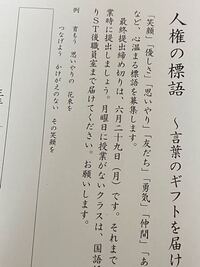 人権の標語 ～言葉のギフトを届け
「笑顔」「優しさ」「思いやり」「友だち」「勇気」「仲間」「あ
など、心温まる標語を募集します。
最終提出締め切りは、六月二十九日(月)です。それまで
業時に提出しましょう。月曜日に授業がないクラスは、国語
りST後職員室まで届けてください。お願いします。
例 育もう 思いやりの 花束を
つなげよう かけがえのない その笑顔を